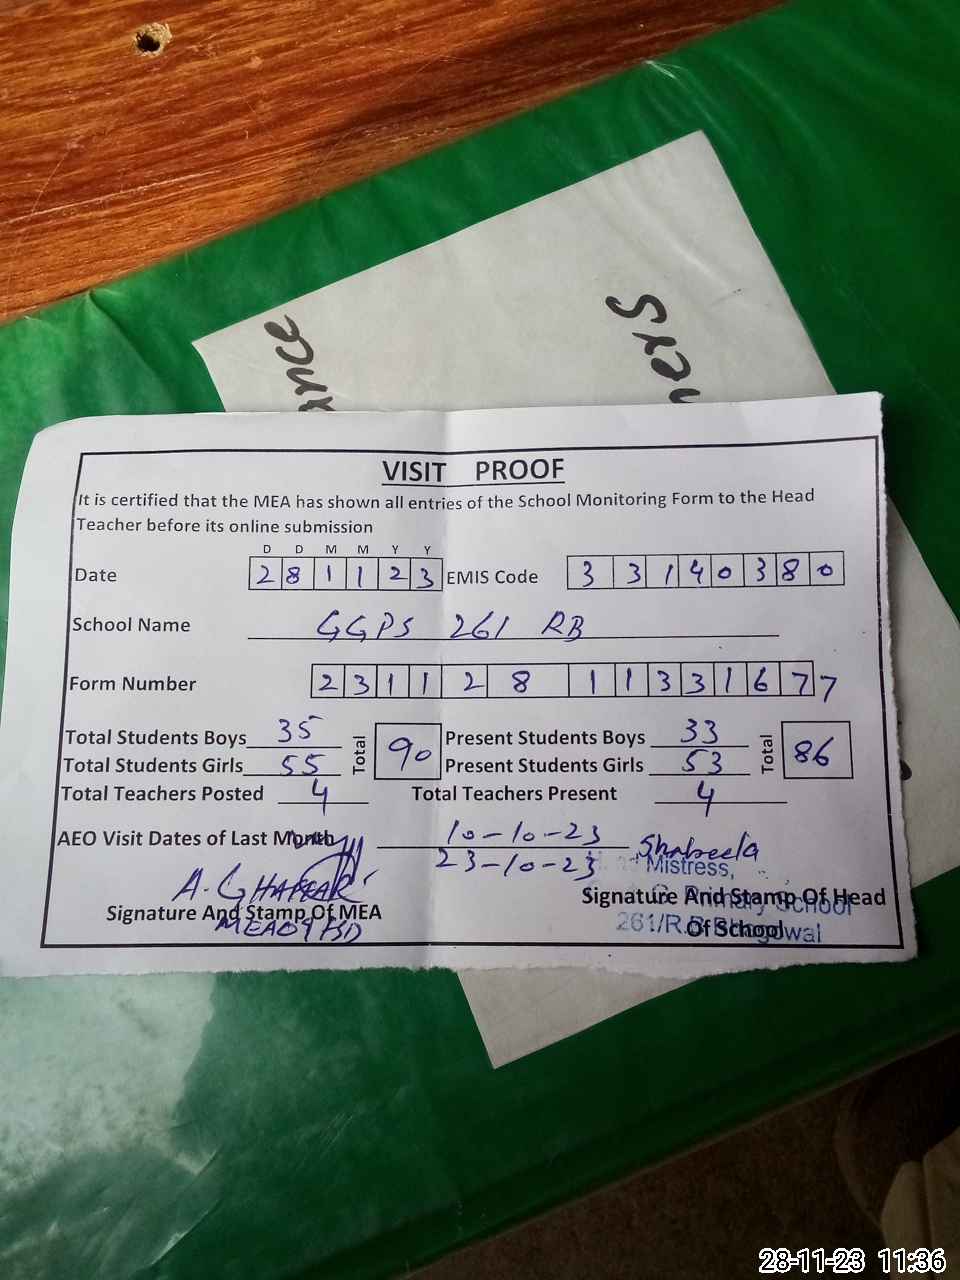 ance
ners
VISIT PROOF
It is certified that the MEA has shown all entries of the School Monitoring Form to the Head
Teacher before its online submission
D D M M Y Y
Date 2 8 1 1 2 3 EMIS Code 3 3 1 4 0 3 8 0
School Name GGPS 261 RB
Form Number 2 3 1 1 2 8 1 1 3 3 1 6 7 7
Total Students Boys 35 Total 90 Present Students Boys 33 Total 86
Total Students Girls 55 Present Students Girls 53
Total Teachers Posted 4 Total Teachers Present 4
AEO Visit Dates of Last Month 10-10-23
23-10-23
Shabeela
Mistress,
Primary School
261/R.B Bhagowal
A.
Signature And Stamp Of MEA
Signature And Stamp Of Head
Of School
28-11-23 11:36